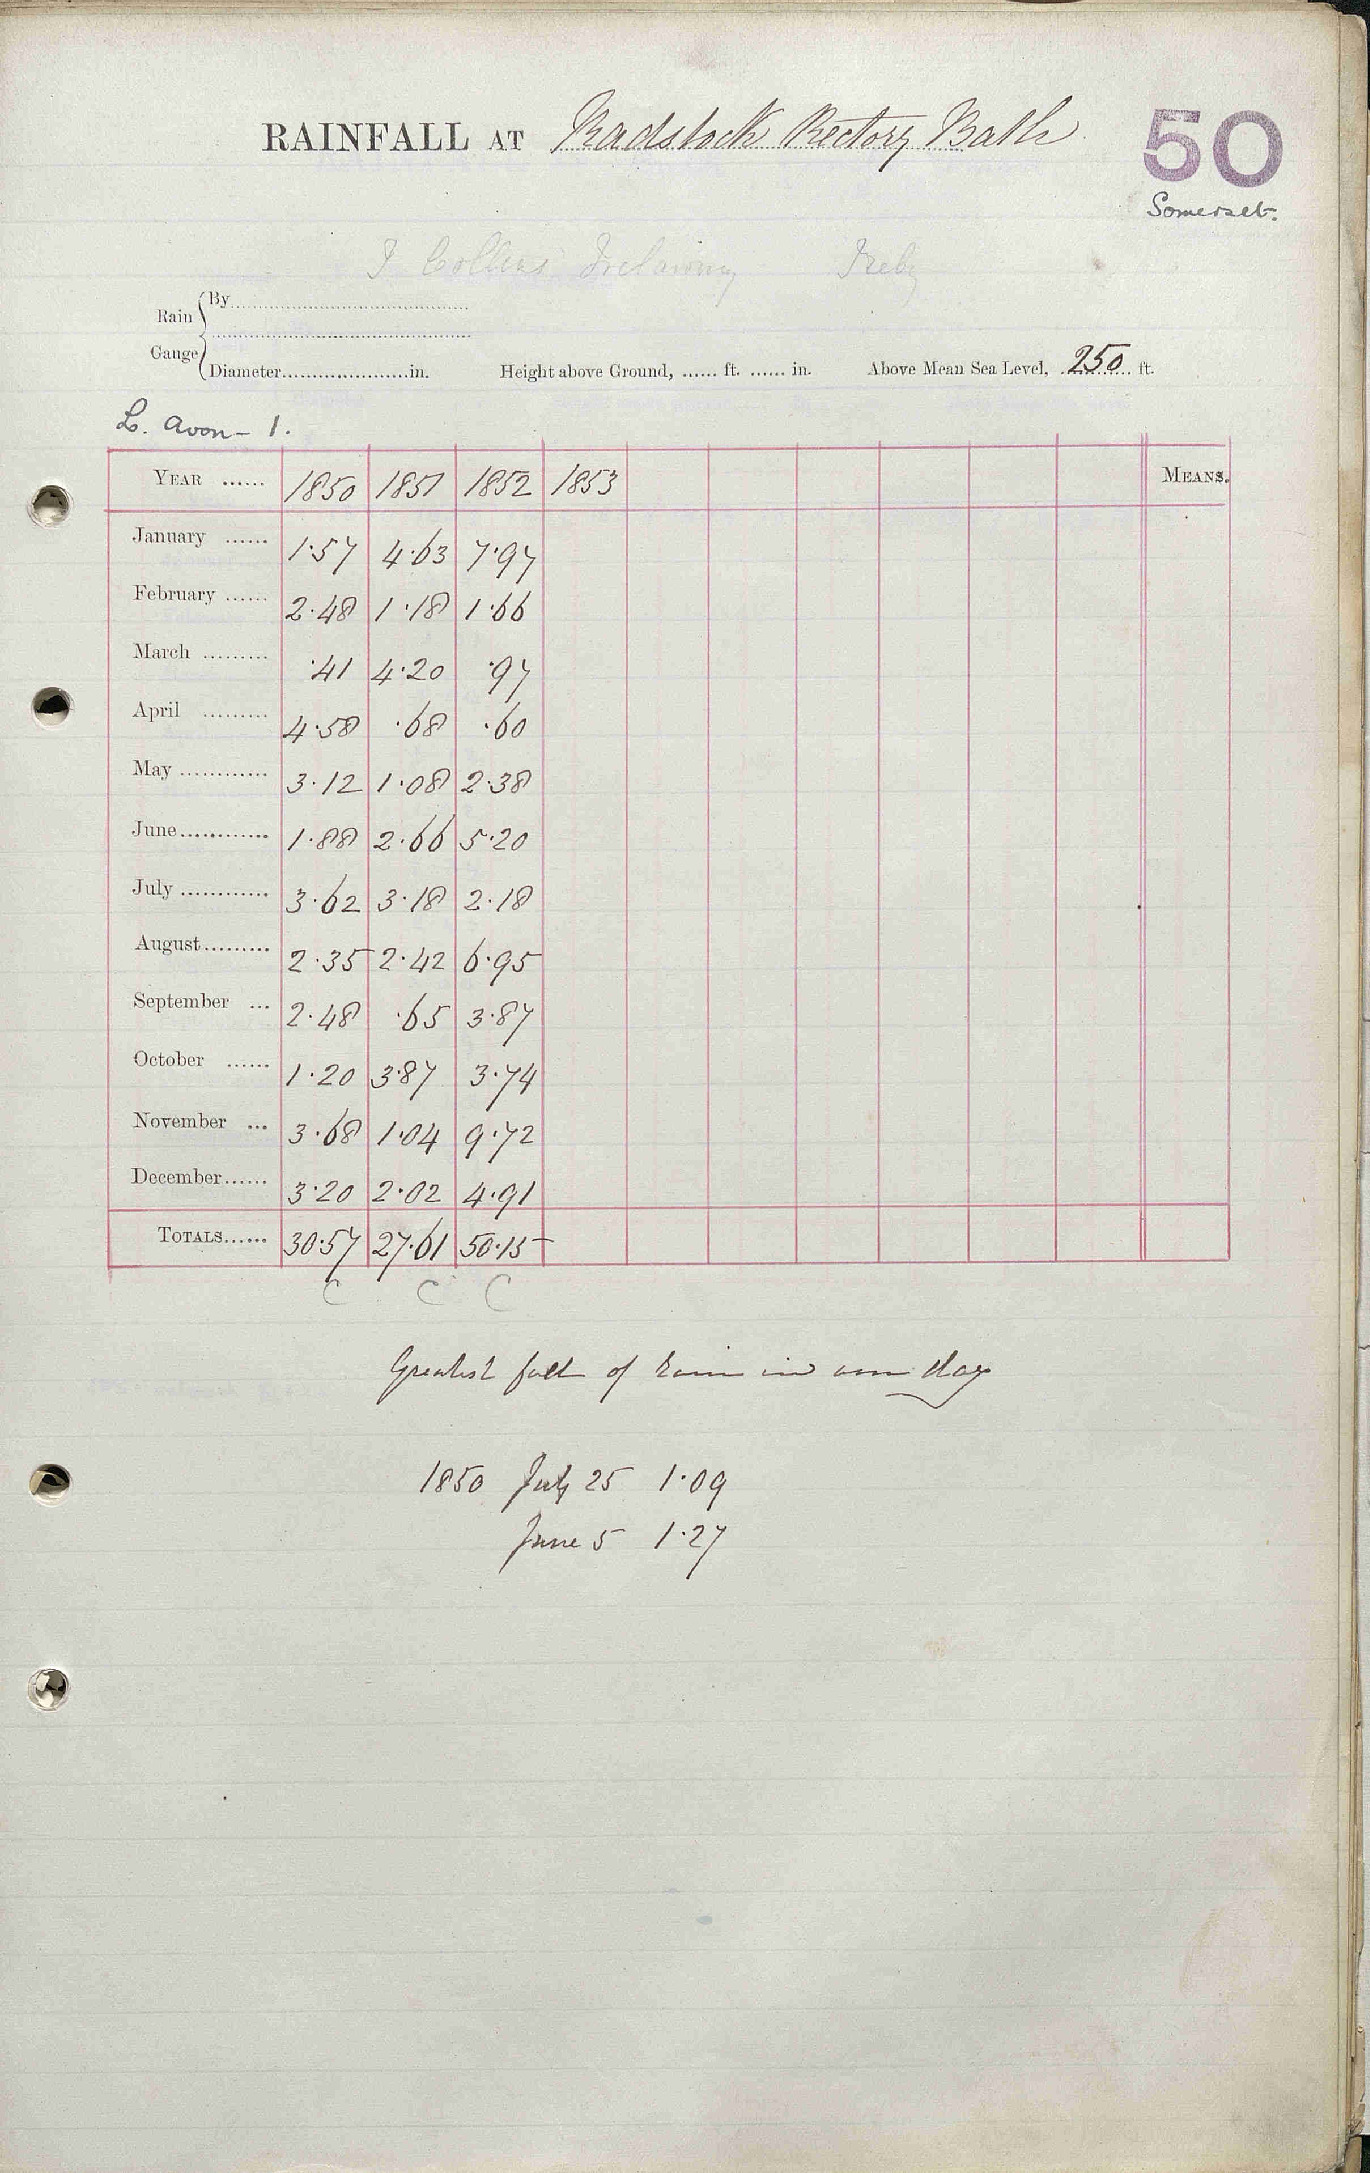 RAINFALL AT Radstock Rectory Bath
50
Somerset.
J Collins Trelawny
Rain Gauge
By
Diameter in. Height above Ground, ft. in. Above Mean Sea Level, 250 ft.
L. Avon - 1.
YEAR 1850 1851 1852 1853 MEANS.
January 1.57 4.63 7.97
February 2.48 1.18 1.66
March .41 4.20 .97
April 4.58 .68 .60
May 3.12 1.08 2.38
June 1.88 2.66 5.20
July 3.62 3.18 2.18
August 2.35 2.42 6.95
September 2.48 .65 3.87
October 1.20 3.87 3.74
November 3.68 1.04 9.72
December 3.20 2.02 4.91
TOTALS 30.57 27.61 50.15
C C C
Greatest fall of rain in one day
1850 July 25 1.09
June 5 1.27